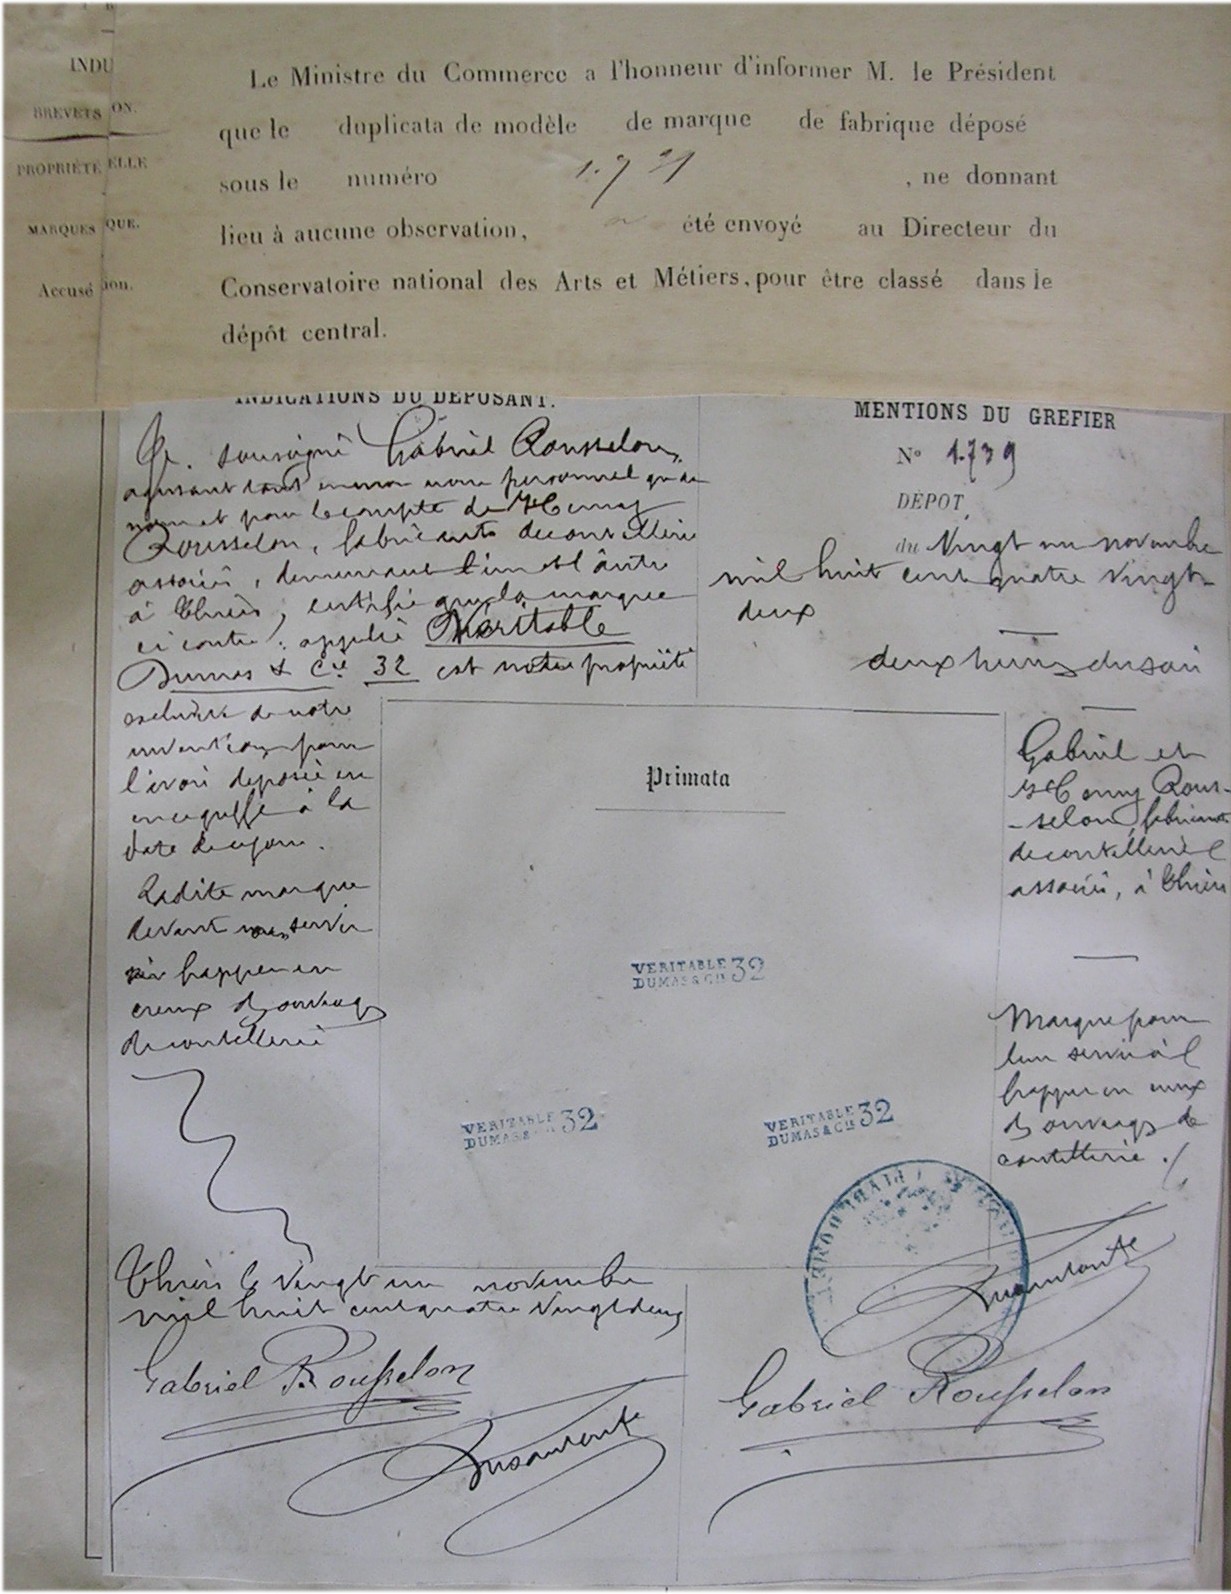 INDU
BREVETS ON.
PROPRIÉTÉ ELLE
MARQUES QUE.
Accusé ion.
Le Ministre du Commerce a l'honneur d'informer M. le Président
que le duplicata de modèle de marque de fabrique déposé
sous le numéro 1.739, ne donnant
lieu à aucune observation, a été envoyé au Directeur du
Conservatoire national des Arts et Métiers, pour être classé dans le
dépôt central.
INDICATIONS DU DÉPOSANT.
Je soussigné Gabriel Rousselon,
agissant tant en mon nom personnel qu'au
nom et pour le compte de
Rousselon, fabricants de coutellerie
associés, demeurant l'un et l'autre
à Thiers, certifie que la marque
ci contre, appelée Véritable
Dumas & Cie 32 est notre propriété
exclusive de notre
invention pour
l'avoir déposée en
en ce greffe à la
date de ce jour.
Ladite marque
devant nous servir
à frapper en
creux les ouvrages
de coutellerie
Thiers le vingt un novembre
mil huit cent quatre vingt deux
Gabriel Rousselon
MENTIONS DU GREFIER
N° 1.739
DÉPOT
du Vingt un novembre
mil huit cent quatre vingt-
deux
deux heures du soir
Primata
VERITABLE 32
DUMAS & CIE
VERITABLE 32
DUMAS & CIE
VERITABLE 32
DUMAS & CIE
Gabriel et
Rous-
-selon, fabricants
de coutellerie
associés, à Thiers
Marque pour
leur servir à
frapper en creux
les ouvrages de
coutellerie.
Gabriel Rousselon